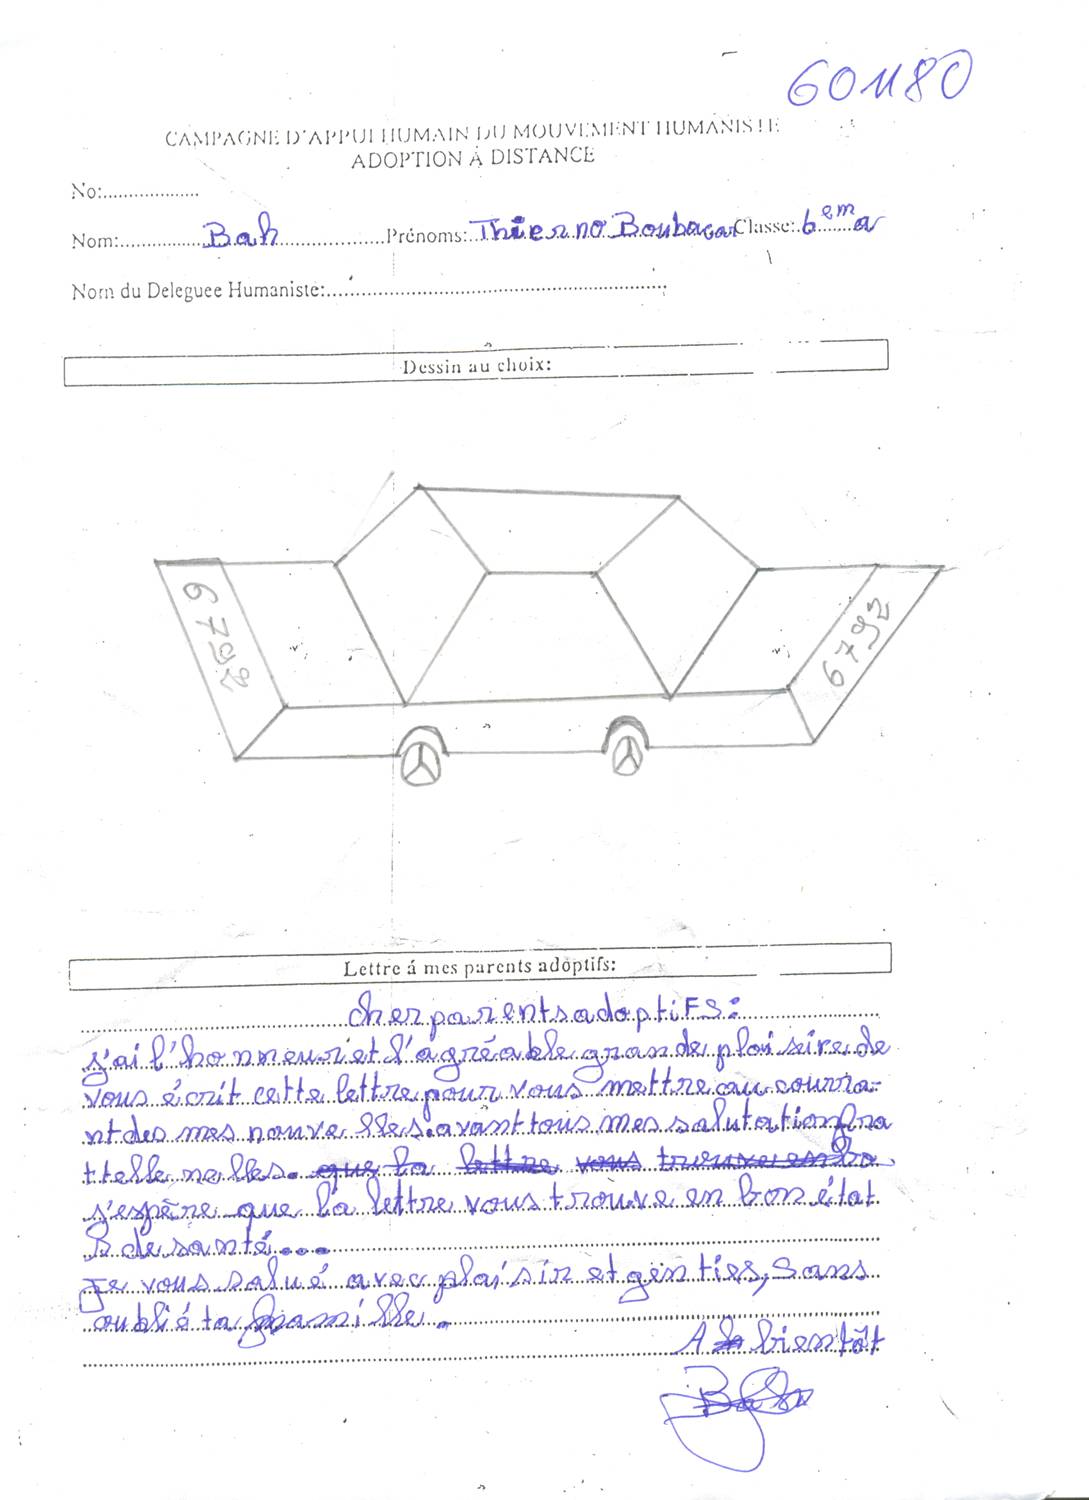 601180
CAMPAGNE D'APPUI HUMAIN DU MOUVEMENT HUMANISTE
ADOPTION Á DISTANCE
No:...................
Nom:................Bah....................Prénoms:.Thierno Boubacar Classe:.6em a
Nom du Deleguee Humaniste:.................................................................
Dessin au choix:
6792
6792
Lettre á mes parents adoptifs:
cher parents adoptiFS:
j'ai l'honneur et l'agréable grande plaisire de
vous écrit cette lettre pour vous mettre au courra-
nt des mes nouvelles. avant tous mes salutation fra
ttelle nelles. que la lettre vous trouve en bo
j'espère que la lettre vous trouve en bon état
de santé....
Je vous salué avec plaisir et genties, sans
oublié ta famille.
A bientôt